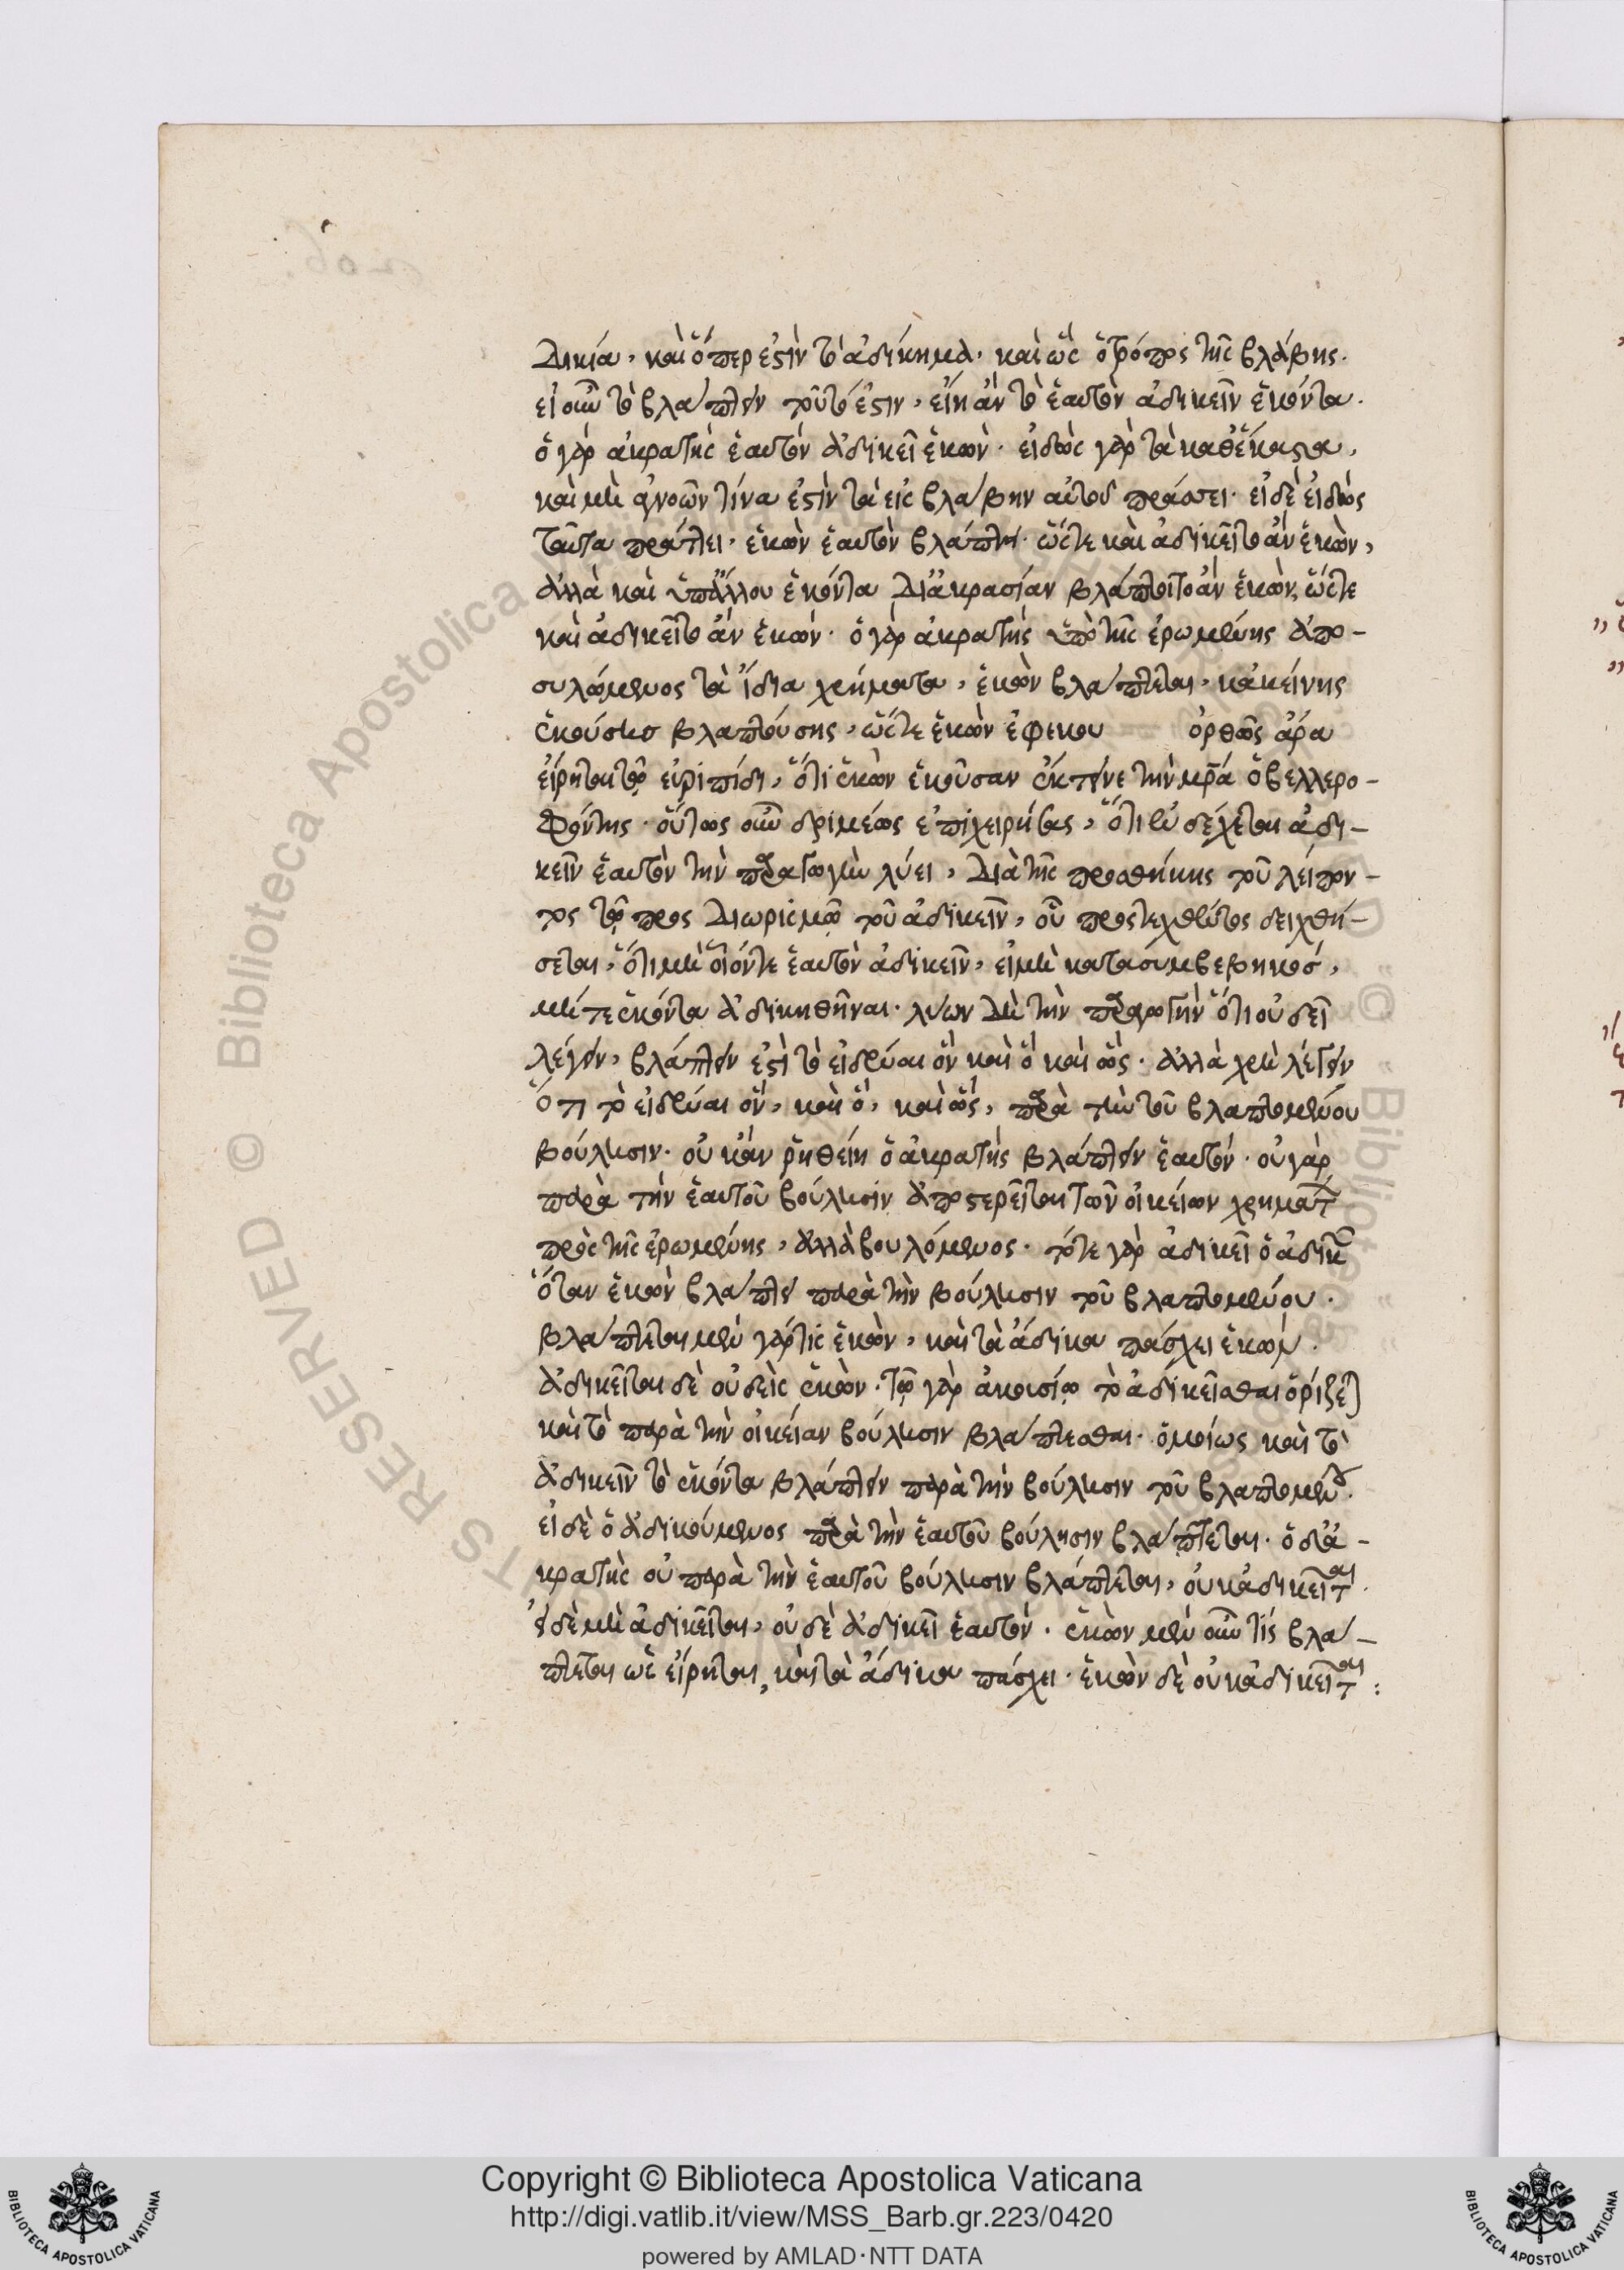 δικία, καὶ ὅπερ ἐστὶν τὸ ἀδίκημα. καὶ ὡς ὁ τρόπος τῆς βλάβης.
εἰ οὖν τὸ βλάπτειν τοῦτό ἐστιν, εἴη ἂν τὸ ἑαυτὸν ἀδικεῖν ἑκόντα.
ὁ γὰρ ἀκρατὴς ἑαυτὸν ἀδικεῖ ἑκών. εἰδὼς γὰρ τὰ καθέκαστα,
καὶ μὴ ἀγνοῶν τίνα ἐστὶν τὰ εἰς βλάβην αὐτοῦ πράσσει. εἰ δὲ εἰδὼς
ταῦτα πράττει, ἑκὼν ἑαυτὸν βλάπτει. ὥστε καὶ ἀδικεῖτο ἂν ἑκὼν,
ἀλλὰ καὶ ὑπ' ἄλλου ἑκόντα δι' ἀκρασίαν βλάπτοιτο ἂν ἑκὼν, ὥστε
καὶ ἀδικεῖτο ἂν ἑκών. ὁ γὰρ ἀκρατὴς ὑπὸ τῆς ἐρωμένης ἀπο-
συλώμενος τὰ ἴδια χρήματα, ἑκὼν βλάπτεται, κἀκείνης
ἑκούσης βλαπτούσης, ὥστε ἑκὼν ἐφεκου ὀρθῶς ἄρα
εἴρηται τῷ εὐριπίδῃ, ὅτι ἑκὼν ἑκοῦσαν ἔκτεινε τὴν μρα ὁ βελλερο-
φόντης. οὕτως οὖν δριμέως ἐπιχειρήσας, ὅτι ἐνδέχεται ἀδι-
κεῖν ἑαυτὸν τὴν παραγωγὴν λύει, διὰ τῆς προσθήκης τοῦ λείπον-
τος τῷ πρὸς διωρισμῷ τοῦ ἀδικεῖν, οὗ προστεχθέντος δειχθή-
σεται, ὅτι μὴ οἷόν τε ἑαυτὸν ἀδικεῖν, εἰ μὴ κατασυμβεβηκός,
μήτε ἑκόντα ἀδικηθῆναι. λύων δὴ τὴν πρώτην ὅτι οὐ δεῖ
λέγειν, βλάπτειν ἐστὶ τὸ εἰδέναι ὃν καὶ ὃ καὶ ὡς. ἀλλὰ χρὴ λέγειν
ὅτι τὸ εἰδέναι ὃν, καὶ ὃ, καὶ ὡς, παρὰ τὴν τοῦ βλαπτομένου
βούλησιν. οὐκ ἂν ῥηθείη ὁ ἀκρατὴς βλάπτειν ἑαυτόν. οὐ γὰρ
παρὰ τὴν ἑαυτοῦ βούλησιν ἀποστερεῖται τῶν οἰκείων χρημάτ
πρὸς τῆς ἐρωμένης, ἀλλὰ βουλόμενος. τότε γὰρ ἀδικεῖ ὁ ἀδικῶν
ὅταν ἑκὼν βλάπτῃ παρὰ τὴν βούλησιν τοῦ βλαπτομένου.
βλάπτεται μὲν γάρ τις ἑκὼν, καὶ τὰ ἄδικα πάσχει ἑκών.
ἀδικεῖται δὲ οὐδεὶς ἑκών. τῷ γὰρ ἀκουσίῳ τὸ ἀδικεῖσθαι ὁρίζεται
καὶ τὸ παρὰ τὴν οἰκείαν βούλησιν βλάπτεσθαι. ὁμοίως καὶ τὸ
ἀδικεῖν τὸ ἑκόντα βλάπτειν παρὰ τὴν βούλησιν τοῦ βλαπτομένου.
εἰ δὲ ὁ ἀδικούμενος παρὰ τὴν ἑαυτοῦ βούλησιν βλάπτεται. ὁ δ' ἀ-
κρατὴς οὐ παρὰ τὴν ἑαυτοῦ βούλησιν βλάπτεται, οὐκ ἀδικεῖται.
εἰ δὲ μὴ ἀδικεῖται, οὐδὲ ἀδικεῖ ἑαυτόν. ἑκὼν μὲν οὖν τις βλά-
πτεται ὡς εἴρηται, καὶ τὰ ἄδικα πάσχει. ἑκὼν δὲ οὐκ ἀδικεῖται:
Copyright © Biblioteca Apostolica Vaticana
http://digi.vatlib.it/view/MSS_Barb.gr.223/0420
powered by AMLAD·NTT DATA